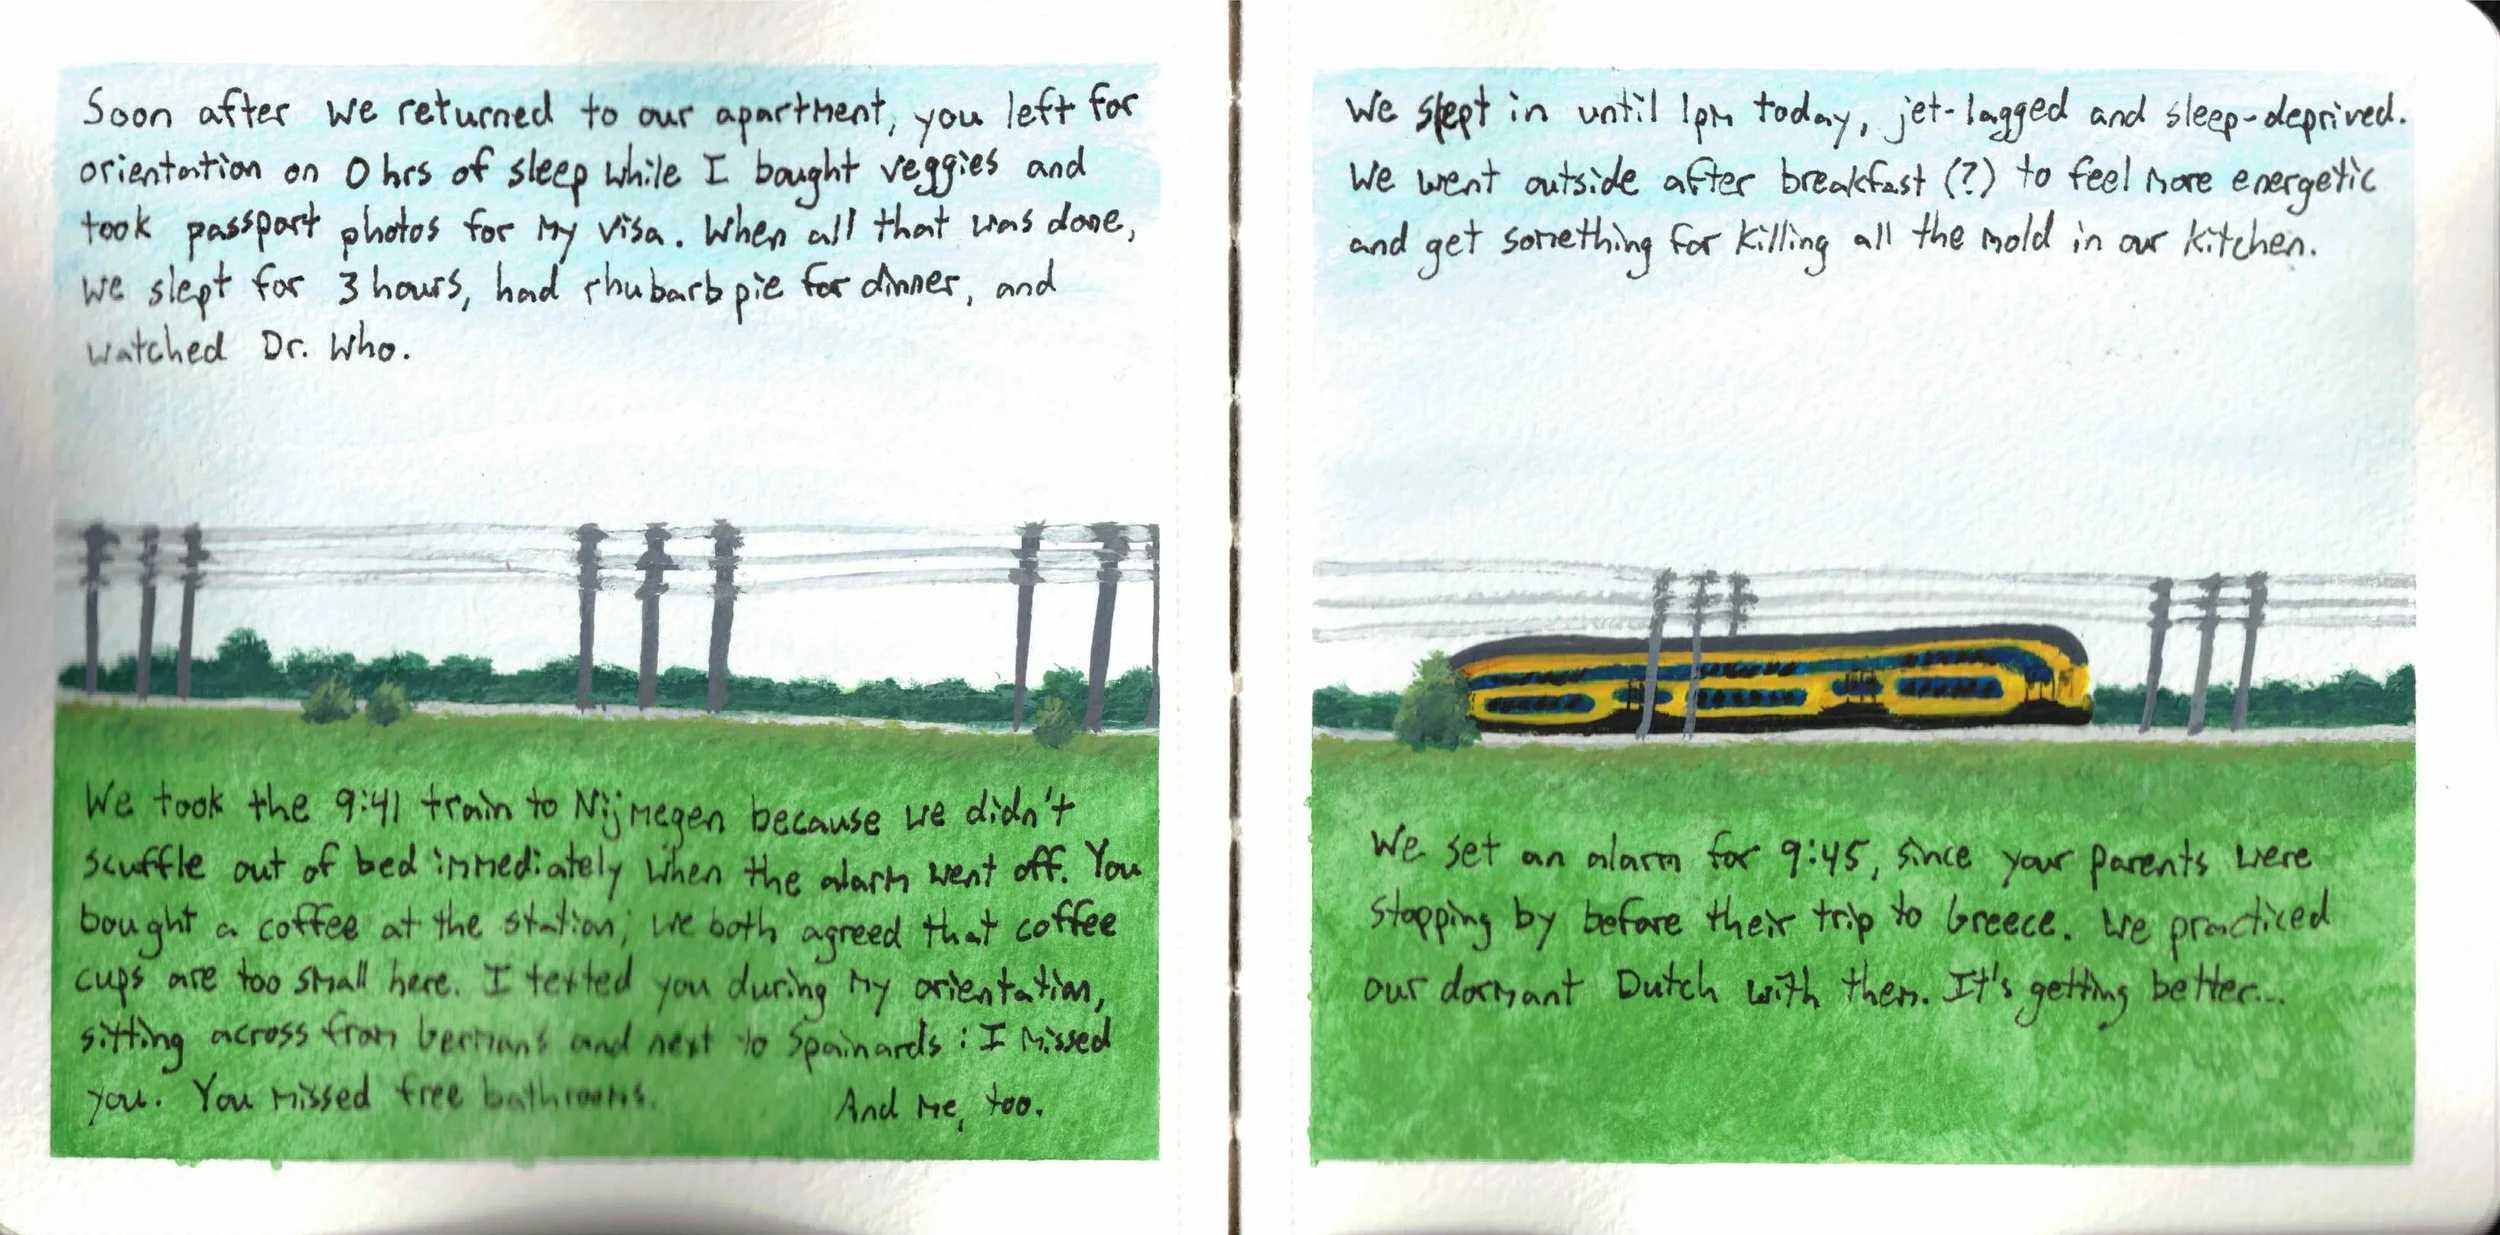 Soon after we returned to our apartment, you left for
orientation on 0 hrs of sleep while I bought veggies and
took passport photos for my visa. When all that was done,
we slept for 3 hours, had rhubarb pie for dinner, and
watched Dr. Who.
We took the 9:41 train to Nijmegen because we didn't
scuffle out of bed immediately when the alarm went off. You
bought a coffee at the station; we both agreed that coffee
cups are too small here. I texted you during my orientation,
sitting across from Germans and next to Spainards: I missed
you. You missed free bathrooms.
And me, too.
We slept in until 1pm today, jet-lagged and sleep-deprived.
We went outside after breakfast (?) to feel more energetic
and get something for killing all the mold in our kitchen.
We set an alarm for 9:45, since your parents were
stopping by before their trip to Greece. We practiced
our dormant Dutch with them. It's getting better...